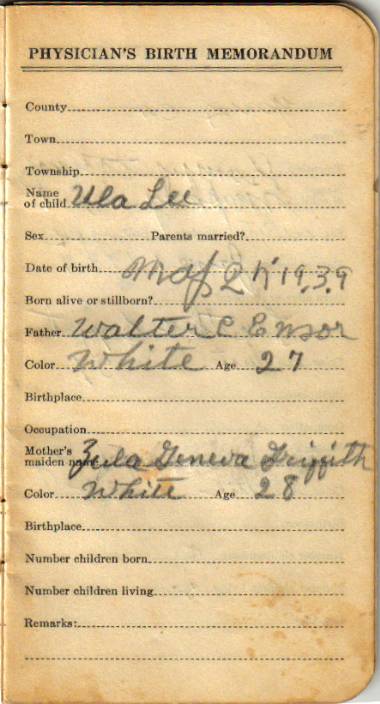 PHYSICIAN'S BIRTH MEMORANDUM
County
Town
Township
Name of child Ula Lee
Sex Parents married?
Date of birth 1939
Born alive or stillborn?
Father Walter C Ensor
Color White Age 27
Birthplace
Occupation
Mother's maiden name Zula Geneva Griffith
Color White Age 28
Birthplace
Number children born
Number children living
Remarks: